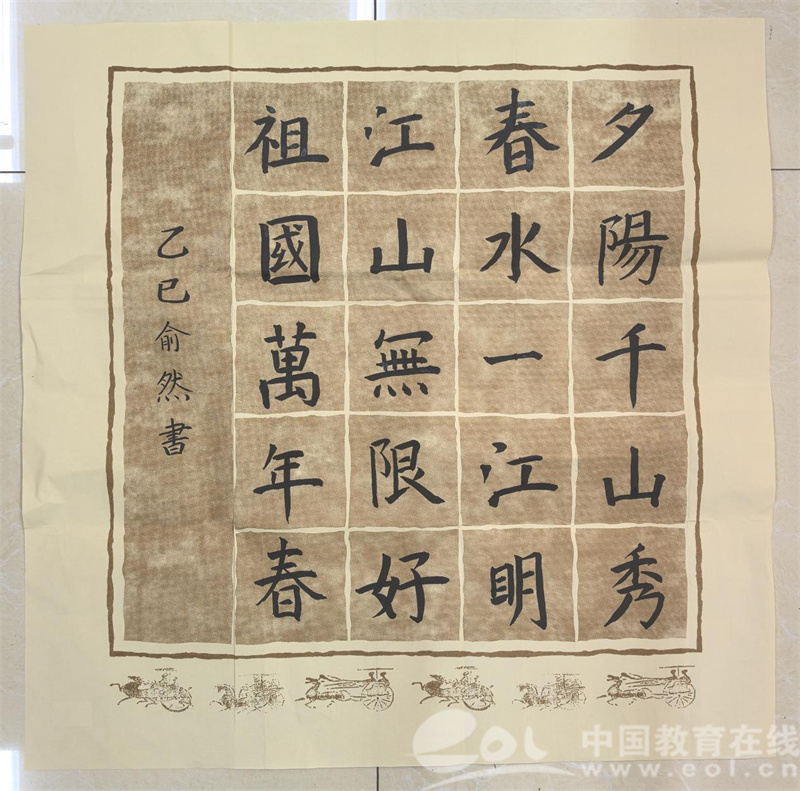 夕陽千山秀
春水一江明
江山無限好
祖國萬年春
乙巳俞然書
eol 中国教育在线
www.eol.cn